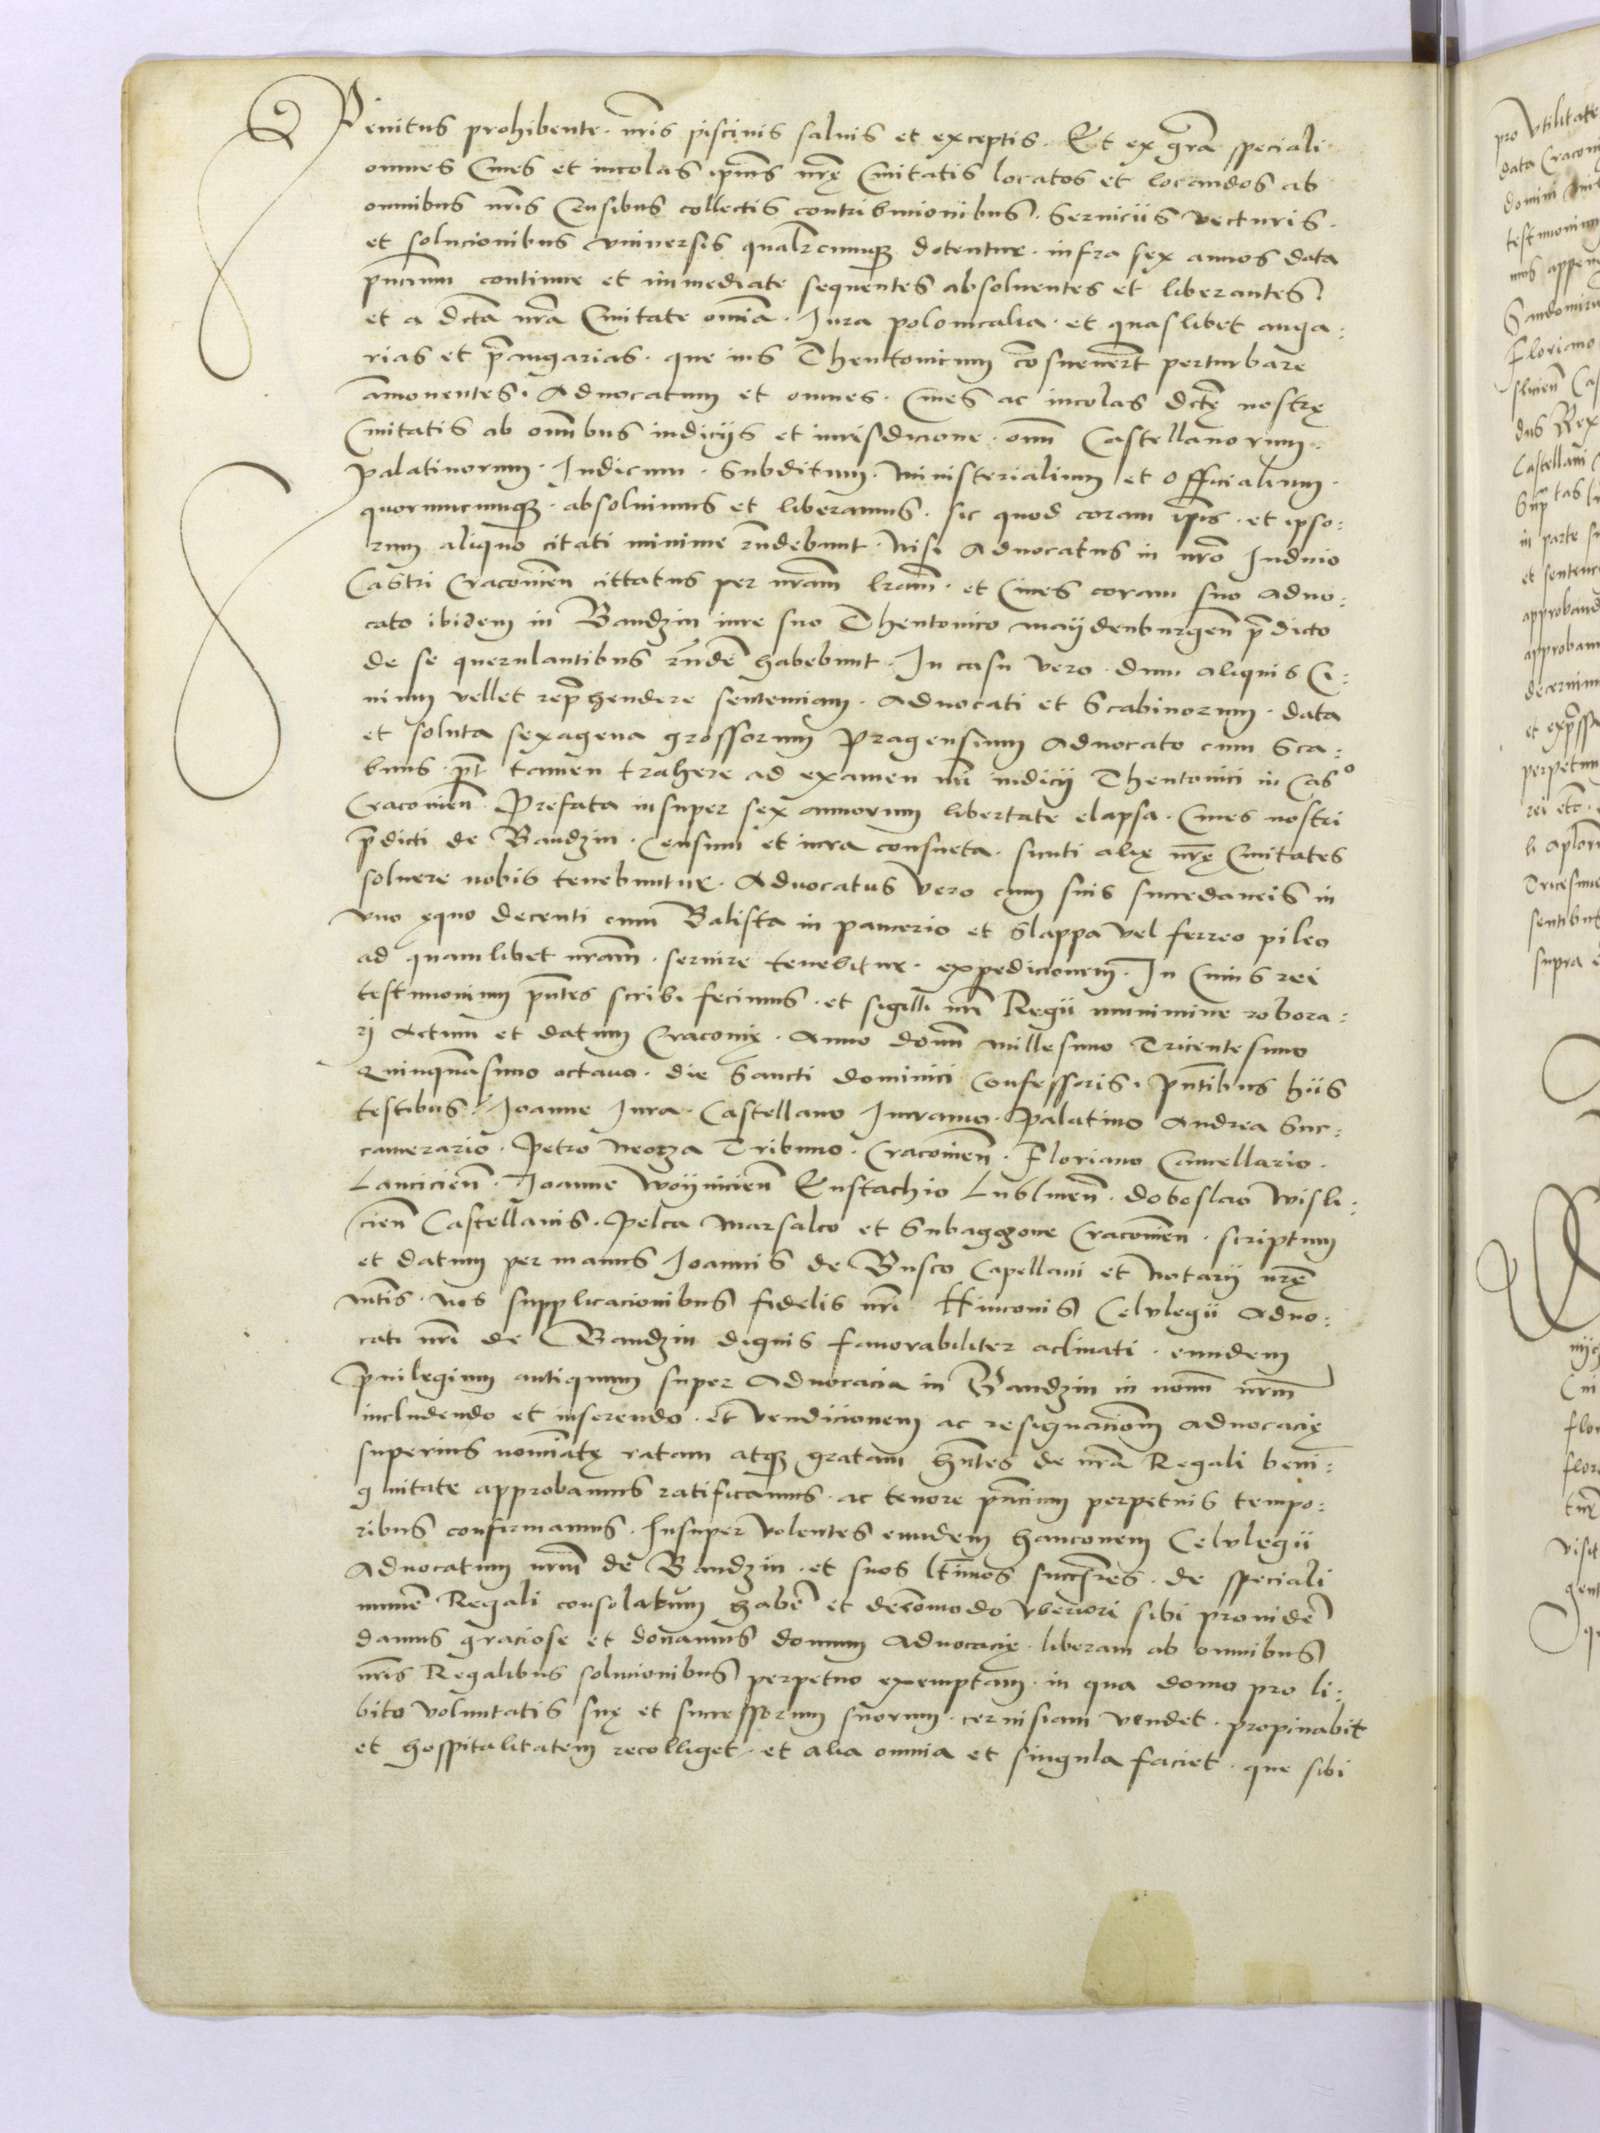 Penitus prohibente. nr̃is piscinis saluis et exceptis. Et ex gr̃a speciali
omnes Ciues et incolas ip̃ius nr̃ę Ciuitatis locatos et locandos ab
omnibus nr̃is Censibus collectis contribucionibus. Seruiciis vecturis.
et solucionibus vniuersis qual̃rcumqꝫ dotentur. infra sex annos data
pñcium continue et immediate sequentes absoluentes et liberantes
et a dcta nr̃a Ciuitate om̃ia. Iura polonicalia. et quaslibet anga:
rias et p̃angarias. que ius Theutonicum cõsueuer̃t perturbare
amouentes. Aduocatum et omnes. Ciues ac incolas dctę nostrę
Ciuitatis ab om̃ibus iudicijs et iurisdicione. om̃ Castellanorum.
Palatinorum. Iudicum. Subditum. Ministerialium et Officialium.
quorumcumqꝫ. absoluimus et liberamus. sic quod coram ip̃is. et ipso:
rum aliquo citati minime r̃ndebunt. Nisi Aduocatus in nr̃o Iudicio
Castri Cracouieñ cittatus per nr̃am lr̃am. et Ciues coram suo aduo:
cato ibidem in Bandzin iure suo Theutonico maydenburgeñ p̃dicto
de se querulantibus r̃nde͂ habebunt. In casu vero. dum aliquis Ci:
uium vellet rep̃hendere sentenciam. Aduocati et Scabinorum. data
et soluta sexagena grossorum Pragensium Aduocato cum Sca:
binis. pt̃ tamen trahere ad examen nr̃i iudicij Theutonici in Casᵒ
Cracouieñ. Prefata insuper sex annorum libertate elapsa. Ciues nostri
p̃dicti de Bandzin. Censum et iura consueta. sicuti alię nr̃ę Ciuitates
soluere nobis tenebuntur. Aduocatus vero cum suis succedaneis in
vno ęquo decenti cum Balista in pancerio et Slappa vel ferreo pileo
ad quamlibet nr̃am. seruire tenebitur. expedicionem. In Cuius rei
testimonium pñtes scribi fecimus. et sigilli nr̃i Regii munimine robora:
rj Actum et datum Cracouię. Anno dom̃ millesimo Tricentesimo
Quinquãsimo octauo. die Sancti dominici Confessoris. pñtibus hiis
testibus. Ioanne Iura. Castellano Imramo. Palatino Andrea Suc:
camerario. Petro Neorza Tribuno. Cracouieñ. Floriano Cancellario.
Lancicieñ. Ioanne Woynicieñ Eustachio Lublineñ. Doboslao Wisli:
cieñ Castellanis. Pelca marsalco et Subaggone Cracouieñ. scriptum
et datum per manus Ioannis de Busco Capellani et Notarij nr̃ę
mtis. Nos supplicacionibus fidelis nr̃i Hinconis Celulegii Aduo:
cati nr̃i de Bandzin dignis fauorabiliter aclinati. eundem
Priuilegium antiquum super Aduocacia in Bandzin in nouũ nr̃m
includendo et inserendo. et vendicionem ac resignacionẽ aduocacię
superius nom̃iatę ratam atqꝫ gratam hñtes de nr̃a Regali beni:
gnitate approbamus ratificamus. ac tenore pñcium perpetuis tempo:
ribus confirmamus. Insuper volentes eundem Hanconem Celulegii
Aduocatum nr̃um de Bandzin. et suos ltĩmos succ̃res. de speciali
munẽ Regali consolatum habẽ et decõmodo vberiori sibi prouidẽ
damus graciose et donamus domum aduocacię. liberam ab omnibus
nr̃is Regalibus solucionibus perpetuo exemptam. in qua domo pro li:
bito voluntatis suę et successorum suorum. ceruisiam vendet. propinabit
et hospitalitatem recolliget. et alia omnia et singula faciet. que sibi